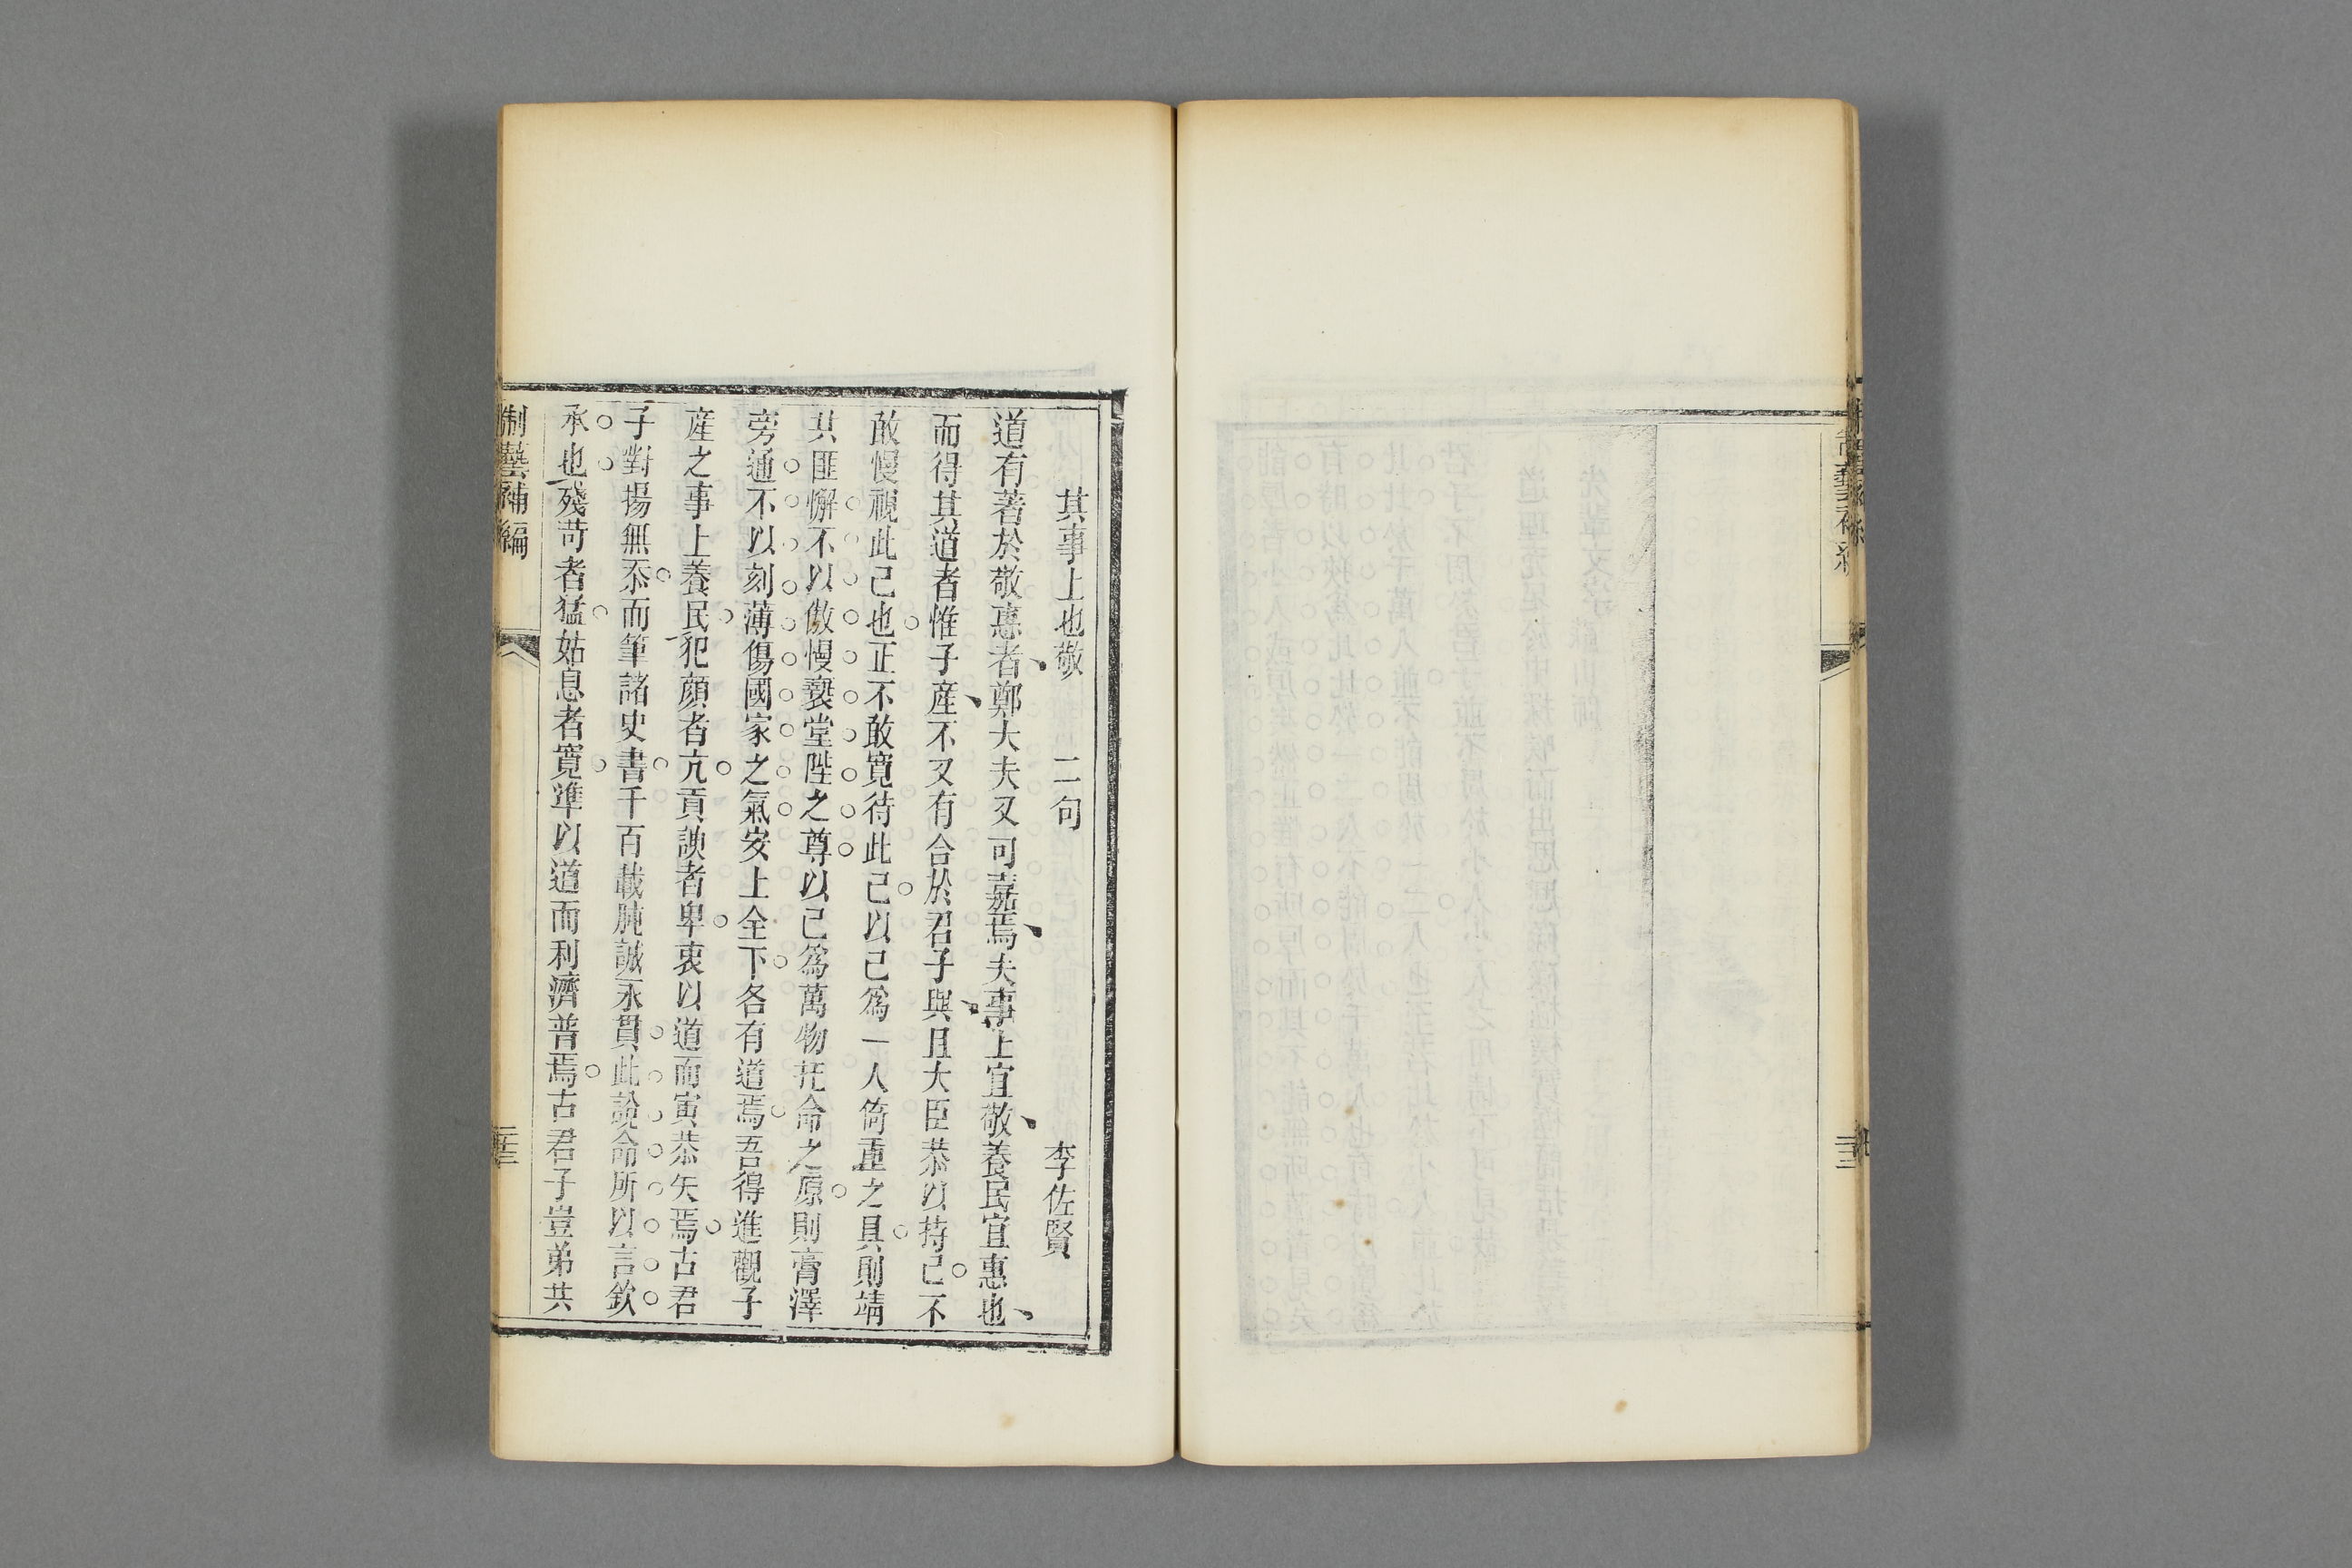 其事上也敬　二句　李佐賢
道有著於敬惠者鄭大夫又可嘉焉夫事上宜敬養民宜惠也
而得其道者惟子産不又有合於君子與且大臣恭以持己不
敢慢視此己也正不敢寬待此己以己爲一人倚重之具則靖
共匪懈不以傲慢褻堂陛之尊以己爲萬物托命之原則膏澤
旁通不以刻薄傷國家之氣安上全下各有道焉吾得進觀子
産之事上養民犯顔者亢貢諛者卑衷以道而寅恭矢焉古君
子對揚無忝而筆諸史書千百載肫誠永貫此說命所以言欽
承也殘苛者猛姑息者寬準以道而利濟普焉古君子豈弟共
制藝補編